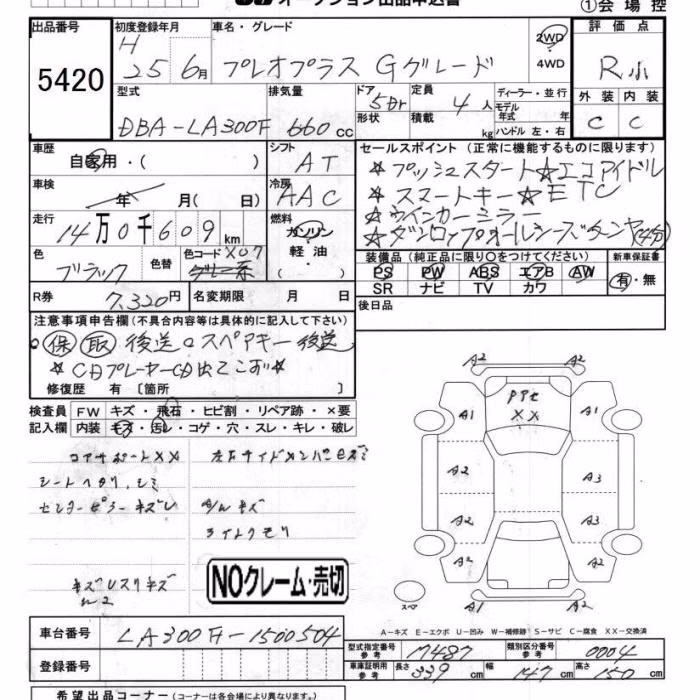 オークション出品申込書
①会場控
出品番号
5420
初度登録年月
H 25 6月
車名・グレード
プレオプラス Gグレード
2WD
4WD
評価点
R小
外装 内装
C C
型式
DBA-LA300F
排気量
660cc
ドア
5Dr
形状
定員
4人
積載
kg
ディーラー・並行
モデル
年式 年
ハンドル 左・右
車歴
自家用・( )
シフト
AT
車検
年 月( 日)
冷房
AAC
走行
14万0千609km
燃料
ガソリン
軽油
( )
色
ブラック
色替
色コード X07
グレー系
R券
7,320円
名変期限 月 日
セールスポイント(正常に機能するものに限ります)
☆プッシュスタート☆エコアイドル
☆スマートキー☆ETC
☆ウインカーミラー
☆ダンロップオールシーズンタイヤ(4分)
装備品(純正品に限り○をつけてください)
新車保証書
PS PW ABS エアB AW
有・無
SR ナビ TV カワ
後日品
注意事項申告欄(不具合内容等は具体的に記入して下さい)
○保 取 後送 ○スペアキー後送
☆CDプレーヤーCD出てこず☆
修復歴 有〔箇所 〕
検査員
記入欄
FW キズ・飛石・ヒビ割・リペア跡・×要
内装 キズ・汚レ・コゲ・穴・スレ・キレ・破レ
コアサポートXX
シートヘタリ、シミ
センターピラーキズ
左右サイドメンバー
キズ
ライトクモリ
NOクレーム・売切
A2
A2 A2
A1 A1
XX
A2 A3
A2 A3
A2 A2
A2 A2
スペア
A-キズ E-エクボ U-凹み W-補修跡 S-サビ C-腐食 XX-交換済
車台番号
LA300F-1500504
登録番号
型式指定番号
参考
17487
類別区分番号
参考
0004
車庫証明用
参考
長さ 339cm 幅 147cm 高さ 150cm
希望出品コーナー(コーナーは各会場により異なります。)